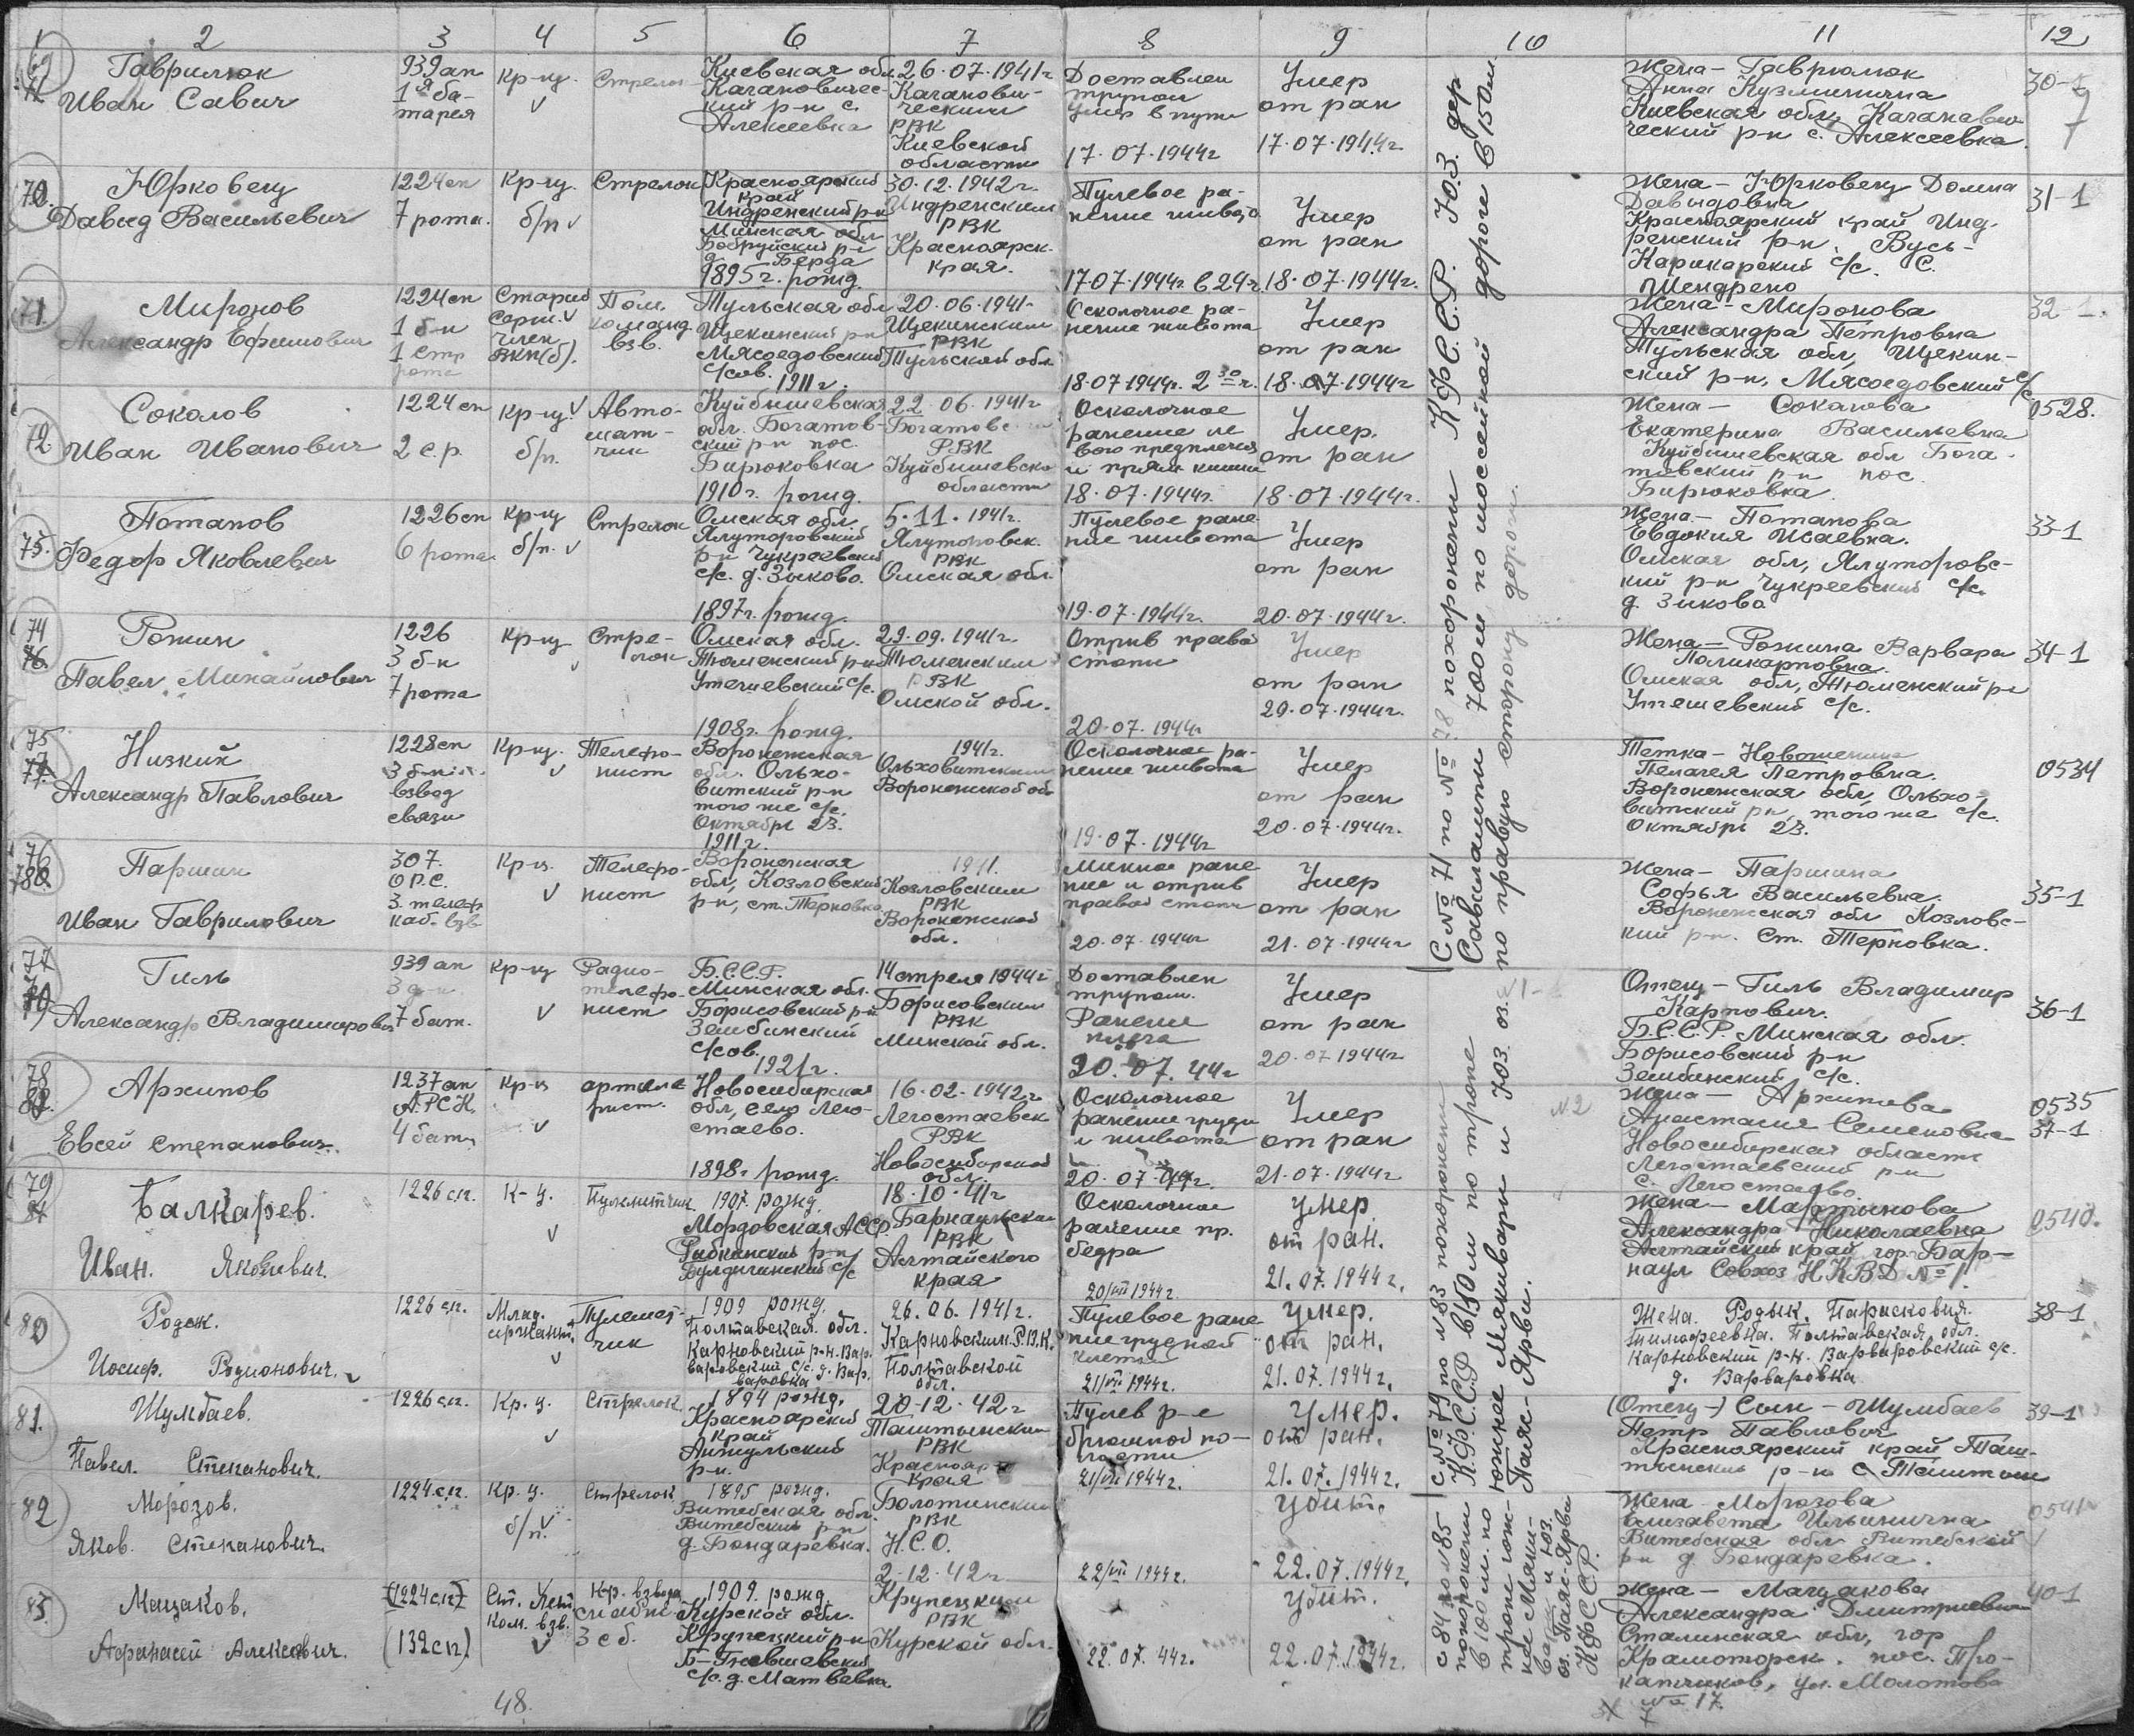 1 2 3 4 5 6 7 8 9 10 11 12
69
Гаврилюк
Иван Савич
939 ап
1я ба-
тарея
Кр-ц.
Стрелок
Киевская обл
Каганович-
кий р-н с.
Алексеевка
26.07.1941г
Каганови-
ческим
РВК
Киевской
области
Доставлен
трупом
умер в пути
17.07.1944г
Умер
от ран
17.07.1944г
Жена – Гаврилюк
Анна Кузминична
Киевская обл, Каганови
ческий р-н с. Алексеевка
30-1
7
70.
Юрковец
Давид Васильевич
1224сп
7 рота.
Кр-ц.
б/п
Стрелок
Красноярский
край
Индренский р-н
Минская обл
Бобруйский р-н
д. Берда
1895г. рожд.
30.12.1942г.
Индренским
РВК
Красноярск.
края.
Пулевое ра-
нение живота
17.07.1944г. в 24ч.
Умер
от ран
18.07.1944г.
Жена – Юрковец Домна
Давыдовна
Красноярский край Инд-
ренский р-н. Вусь-
с/с. С.
31-1
71.
Миронов
Александр Ефимович
1224сп
1 б-н
1 стр
рота
Старш
серж.
член
ВКП(б).
Пом.
команд.
взв.
Тульская обл
Щекинский р-н
Мясоедовский
с/сов.
1911г.
20.06.1941-
Щекинским
РВК
Тульской обл.
Осколочное ра-
нение живота
18.07.1944г. 2 30 ч.
Умер
от ран
18.07.1944г
Жена – Миронова
Александра Петровна
Тульская обл, Щекин-
ский р-н, Мясоедовский с/с
32-1.
72.
Соколов
Иван Иванович
1224сп
2 с.р.
Кр-ц.
б/п.
Авто-
мат-
чик
Куйбышевская
обл. Богатов-
ский р-н пос.
Бирюковка
1910г. рожд.
22.06.1941г
Богатовс
РВК
Куйбышевско
области
Осколочное
ранение ле
вого предплечья
и прям кишки
18.07.1944г.
Умер.
от ран
18.07.1944г.
Жена – Соколова
Екатерина Васильевна
Куйбышевская обл Бога-
товский р-н пос.
Бирюковка.
0528.
73.
Потапов
Федор Яковлевич
1226сп
6 рота
Кр-ц
б/п.
Стрелок
Омская обл.
Ялуторовский
р-н Чукреевский
с/с. д. Зыково.
1897г. рожд.
5.11.1941г.
Ялуторовск.
РВК
Омская обл.
Пулевое ране-
ние живота
19.07.1944г.
Умер
от ран
20.07.1944г.
Жена – Потапова
Евдокия Исаевна.
Омская обл, Ялуторовс-
кий р-н Чукреевский с/с.
д. Зыкова
33-1
74
76.
Рожин
Павел Михайлович
1226
3 б-н
7 рота
Кр-ц
Стре-
лок
Омская обл.
Тюменский р-н
Утешевский с/с.
1908г. рожд.
29.09.1941г.
Тюменским
РВК
Омской обл.
Отрыв правой
стопы
20.07.1944г
Умер
от ран
20.07.1944г.
Жена – Рожина Варвара
Поликарповна.
Омская обл, Тюменский р-н
Утешевский с/с.
34-1
75
77.
Низкий
Александр Павлович
1228сп
3 б-н
взвод
связи
Кр-ц.
Телефо-
нист
Воронежская
обл. Ольхо-
ватский р-н
того же с/с.
Октября 23.
1911г.
1941г.
Ольховатским
Воронежской об
Осколочное ра-
нение живота
19.07.1944г
Умер
от ран
20.07.1944г.
Тетка –
Пелагея Петровна.
Воронежская обл, Ольхо-
ватский р-н, того же с/с.
Октября 23.
0534
76
78.
Паршин
Иван Гаврилович
307.
О.Р.С.
3. телеф
каб. взв
Кр-ц.
Телефо-
нист
Воронежская
обл, Козловский
р-н, ст. Терновка
1941.
Козловским
РВК
Воронежской
обл.
Минное ране
ние и отрыв
правой стопы
20.07.1944г
Умер
от ран
21.07.1944г
Жена – Паршина
Софья Васильевна.
Воронежская обл Козловс-
кий р-н. Ст. Терновка.
35-1
77
Гиль
Александр Владимирович
939 ап
3 д-н
7 бат.
Кр-ц
Радио-
телефо-
нист
Б.С.С.Р.
Минская обл.
Борисовский р-н
Зембинский
с/сов.
1921г.
14 апреля 1944г
Борисовским
РВК
Минской обл.
Доставлен
трупом.
Ранение
плеча
20.07.44г
Умер
от ран
20.07.1944г
Отец – Гиль Владимир
Карпович.
Б.С.С.Р. Минская обл.
Борисовский р-н
Зембинский с/с.
36-1
78
Архипов
Евсей Степанович
1237ап
А.РСК.
4 бат.
Кр-ц
артиле
рист.
Новосибирская
обл, село Лего-
стаево.
1898г. рожд.
16.02.1942г
Легостаевск
РВК
Новосибирской
обл.
Осколочное
ранение груди
и живота
20.07.44г.
Умер
от ран
21.07.1944г
Жена – Архипова
Анастасия Семеновна
Новосибирская область
Легостаевский р-н
с. Легостаево.
0535
37-1
79
Балкарев.
Иван. Яковлевич.
1226 с.п.
К-ц.
Пулеметчик
1907. рожд.
Мордовская АССР.
Рыбкинский р-н
Булдыгинский с/с
18.10.41г
Барнаульским
РВК
Алтайского
края
Осколочное
ранение пр.
бедра
20/VII 1944г.
умер.
от ран.
21.07.1944г.
Жена – Мартынова
Александра Николаевна
Алтайский край гор. Бар-
наул Совхоз НКВД №1.
0540.
80
Родак.
Иосиф. Родионович.
1226 с.п.
Млад.
сержант.
Пулемет-
чик
1909 рожд.
Полтавская. обл.
Карловский р-н. Вар.
варовский с/с. д. Вар.
варовка
26.06.1941г.
Карловским. Р.В.К.
Полтавской
обл.
Пулевое ране
ние грудной
клетки
21/VII 1944г.
умер.
от ран.
21.07.1944г.
Жена. Родык. Парасковия.
Тимофеевна. Полтавская, обл.
Карловский р-н. Варваровский с/с.
д. Варваровка
38-1
81.
Шулбаев.
Павел. Степанович.
1226 с.п.
Кр.ц.
Стрелок
1894 рожд.
Красноярский
край
р-н.
20.12.42г
Таштыпским
РВК
Краснояр
края
Пулев р-е
брюшной по-
лости
21/VII 1944г.
умер.
от ран.
21.07.1944г.
(Отец-) Сын – Шулбаев
Петр Павлович
Красноярский край Таш-
тыпский р-н с Таштып
39-1
82
Морозов.
Яков. Степанович.
1224 с.п.
Кр.ц.
б/п.
Стрелок
1895 рожд.
Витебская обл.
Витебский р-н
д. Бондаревка.
Болотнинским
РВК
Н.С.О.
2.12.42г
22/VII 1944г.
убит.
22.07.1944г.
Жена Морозова
Елизавета Ильинична
Витебская обл Витебский
р-н д. Бондаревка.
0541
83.
Мацаков.
Афанасий Алексеевич.
(1224 с.п.)
(132 с.п.)
Ст. Лейт
Ком. взв.
Кр. взвода
3 с б.
1909. рожд
Курской обл.
Крупецкий р-н
с/с. д. Матвеевка
Крупецким
РВК
Курской обл.
22.07.44г.
убит.
22.07.1944г.
Жена – Мацакова
Александра Дмитриевна
Сталинская обл, гор
Краматорск. пос. Про-
катчиков, ул. Молотова
№ 17.
40-1
С № 71 по № 78 похоронены К.Ф.С.С.Р. Ю.З. дер.
Савилампи 700м по шоссейной дороге в 150м
по правую сторону дороги.
с № 79 по № 83 похоронены
К.Ф.С.С.Р в 150 м по тропе
южнее Мякиваари и Ю.З. оз.
Паяс-Ярви.
с 84 по 85
похоронены
в 100м. по
тропе юж-
нее Мяки-
ва и Ю.З.
оз. Паяс-Ярви
К.Ф.С.С.Р.
№2
48.